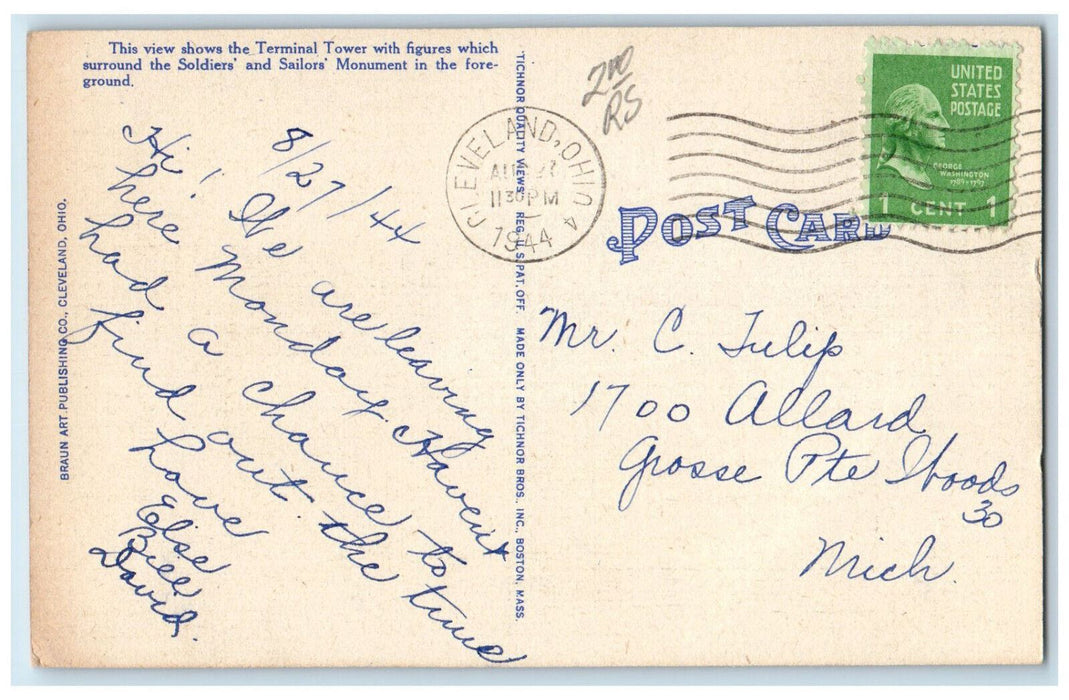 This view shows the Terminal Tower with figures which
surround the Soldiers' and Sailors' Monument in the fore-
ground.
8/27/44
Hi! We are leaving
here Monday. Haven't
had a chance to
find out the time
Love
Else
Bill
David.
BRAUN ART PUBLISHING CO., CLEVELAND, OHIO.
TICHNOR QUALITY VIEWS. REG. U. S. PAT. OFF. MADE ONLY BY TICHNOR BROS., INC., BOSTON, MASS.
2nd
RS
CLEVELAND, OHIO
1130 PM
1944
4
UNITED
STATES
POSTAGE
GEORGE
WASHINGTON
1789-1797
1 CENT 1
POST CARD
Mr. C. Tulip
1700 Allard
Grosse Pte Woods
30
Mich.